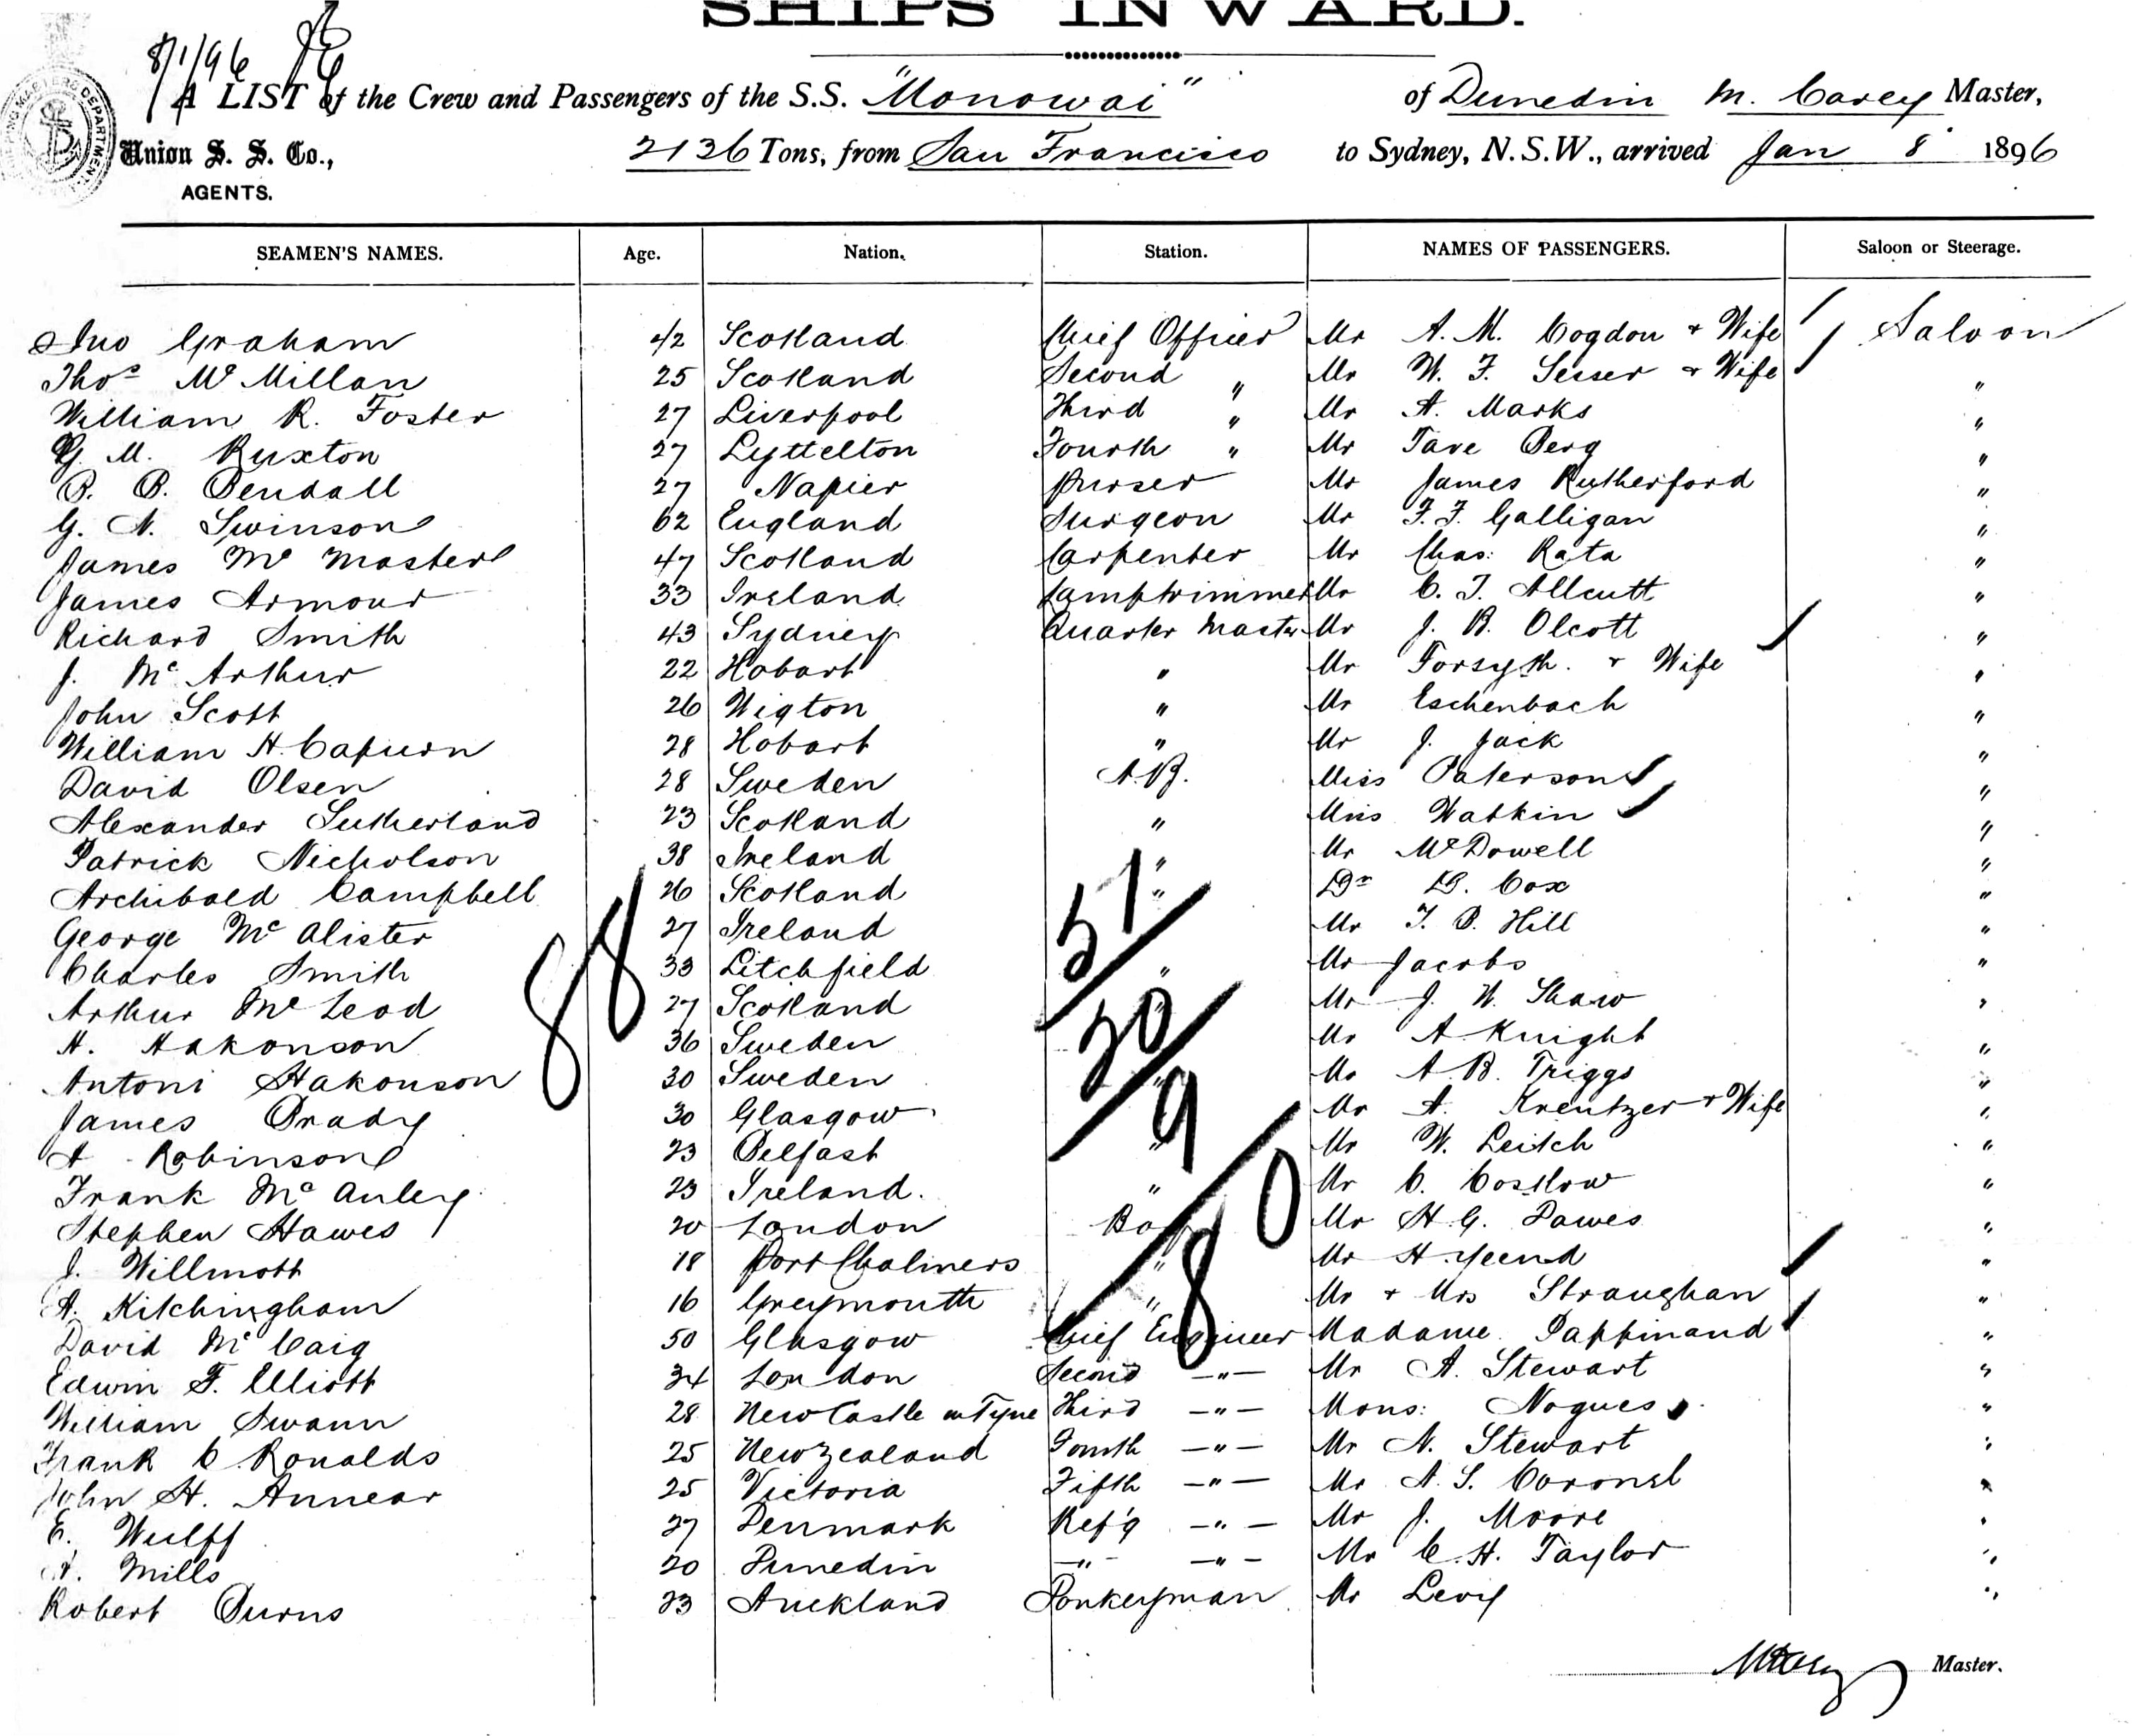 SHIPS INWARD.
8/1/96
A LIST of the Crew and Passengers of the S.S. "Monowai" of Dunedin M. Carey Master,
Union S. S. Co., 2136 Tons, from San Francisco to Sydney, N.S.W., arrived Jan 8 1896
AGENTS.
SEAMEN'S NAMES. Age. Nation. Station. NAMES OF PASSENGERS. Saloon or Steerage.
Jno Graham 42 Scotland Chief Officer Mr A. M. Cogdon + Wife Saloon
Thos McMillan 25 Scotland Second " Mr W. F. Sesser + Wife "
William R. Foster 27 Liverpool Third " Mr A. Marks "
G. M. Ruxton 27 Lyttelton Fourth " Mr Tave Berg "
B. B. Bendall 27 Napier Purser Mr James Rutherford "
G. N. Swinson 62 England Surgeon Mr F. F. Galligan "
James Mc Master 47 Scotland Carpenter Mr Chas: Rata "
James Armour 33 Ireland Lamptrimmer Mr C. T. Allcutt "
Richard Smith 43 Sydney Quarter Master Mr J. B. Olcott "
J. Mc Arthur 22 Hobart " Mr Forsyth. + Wife "
John Scott 26 Wigton " Mr Eschenbach "
William H. Capurn 28 Hobart " Mr J. Jack "
David Olsen 28 Sweden A.B. Miss Paterson "
Alexander Sutherland 23 Scotland " Miss Watkin "
Patrick Nicholson 38 Ireland " Mr McDowell "
Archibald Campbell 26 Scotland " Dr B. Cox "
George Mc Alister 27 Ireland Mr T. B. Hill "
Charles Smith 33 Litchfield " Mr Jacobs "
Arthur McLeod 27 Scotland " Mr J. W. Shaw "
A. Hakonson 36 Sweden Mr A Knight "
Antoni Hakonson 30 Sweden " Mr A. B. Triggs "
James Brady 30 Glasgow Mr A. Kreutzer + Wife "
A Robinson 23 Belfast " Mr W. Leitch "
Frank Mc Auley 23 Ireland. " Mr C. Costlow "
Stephen Hawes 20 London Boy Mr H. G. Dawes "
J. Willmott 18 Port Chalmers " Mr H. Yeend "
A. Kitchingham 16 Greymouth " Mr + Mrs Straughan "
David Mc Caig 50 Glasgow Chief Engineer Madame Pappinand "
Edwin F. Elliott 34 London Second —"— Mr A. Stewart "
William Swann 28 NewCastle on Tyne Third —"— Mons: Nogues "
Frank C. Ronalds 25 New Zealand Fourth —"— Mr N. Stewart "
John H. Annear 25 Victoria Fifth —"— Mr A. S. Coronel "
E. Wulff 27 Denmark Ref'g —"— Mr J. Moore "
A. Mills 20 Dunedin —"— —"— Mr C. H. Taylor "
Robert Burns 23 Auckland Donkeyman Mr Levy "
88
51
20
9
80
8
MCarey Master.